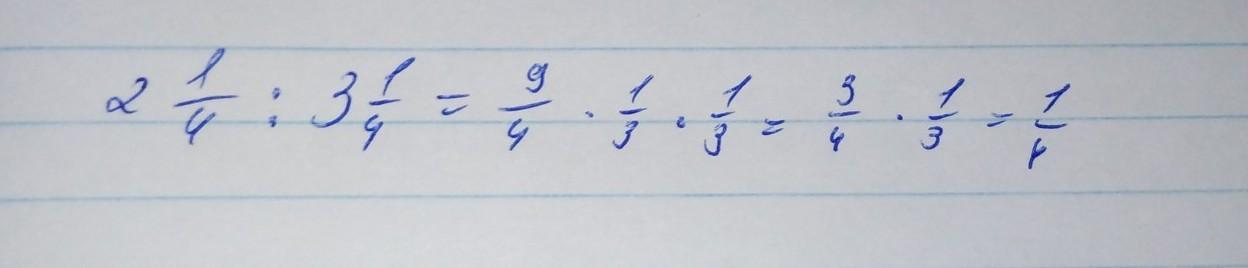 2 1/4 : 3 1/4 = 9/4 · 1/3 · 1/3 = 3/4 · 1/3 = 1/4